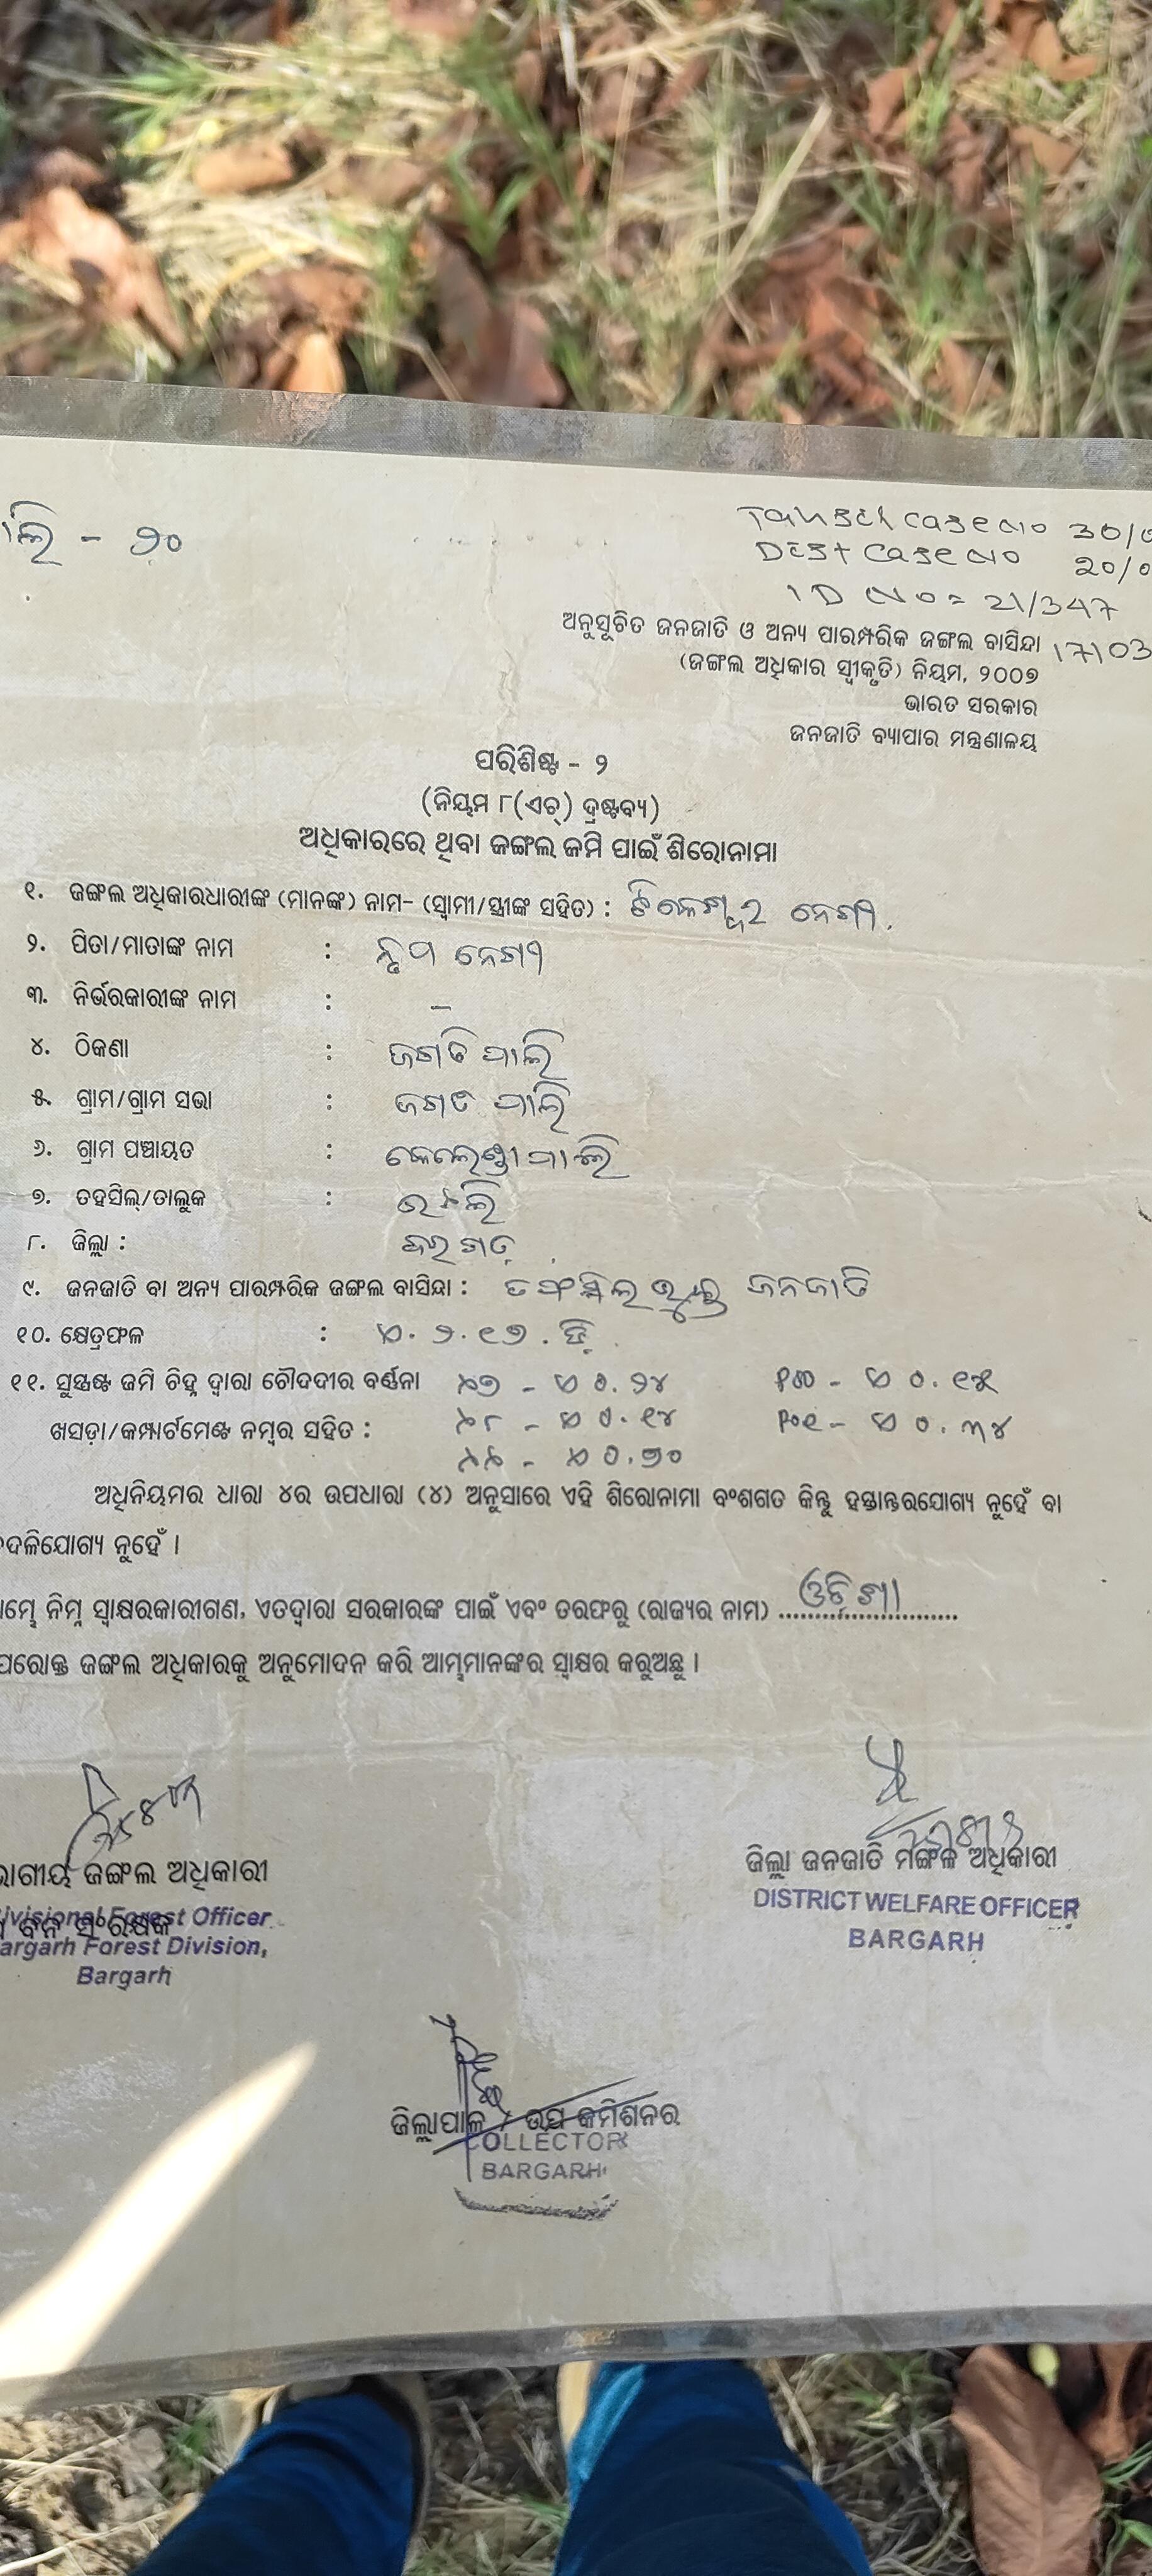 ାଲି - ୨୦
Tahsil case no 30/0
Dist Case No 20/0
ID No = 21/347
17103
ଅନୁସୂଚିତ ଜନଜାତି ଓ ଅନ୍ୟ ପାରମ୍ପରିକ ଜଙ୍ଗଲ ବାସିନ୍ଦା
(ଜଙ୍ଗଲ ଅଧିକାର ସ୍ୱୀକୃତି) ନିୟମ, ୨୦୦୭
ଭାରତ ସରକାର
ଜନଜାତି ବ୍ୟାପାର ମନ୍ତ୍ରଣାଳୟ
ପରିଶିଷ୍ଟ - ୨
(ନିୟମ ୮(ଏଚ୍) ଦ୍ରଷ୍ଟବ୍ୟ)
ଅଧିକାରରେ ଥିବା ଜଙ୍ଗଲ ଜମି ପାଇଁ ଶିରୋନାମା
୧. ଜଙ୍ଗଲ ଅଧିକାରଧାରୀଙ୍କ (ମାନଙ୍କ) ନାମ- (ସ୍ୱାମୀ/ସ୍ତ୍ରୀଙ୍କ ସହିତ) : ଟିକେଶ୍ୱର ନେଗୀ.
୨. ପିତା/ମାତାଙ୍କ ନାମ : ନୃପ ନେଗୀ
୩. ନିର୍ଭରକାରୀଙ୍କ ନାମ : –
୪. ଠିକଣା : ଜଗତି ପାଲି
୫. ଗ୍ରାମ/ଗ୍ରାମ ସଭା : ଜଗତ ପାଲି
୬. ଗ୍ରାମ ପଞ୍ଚାୟତ : କେଲେଣ୍ଡୀପାଲି
୭. ତହସିଲ୍/ତାଲୁକ :
୮. ଜିଲ୍ଲା : ବରଗଡ଼
୯. ଜନଜାତି ବା ଅନ୍ୟ ପାରମ୍ପରିକ ଜଙ୍ଗଲ ବାସିନ୍ଦା : ତଫସିଲଭୁକ୍ତ ଜନଜାତି
୧୦. କ୍ଷେତ୍ରଫଳ : ଏ. ୨.୧୭. ଡି.
୧୧. ସୁସ୍ପଷ୍ଟ ଜମି ଚିହ୍ନ ଦ୍ୱାରା ଚୌଦଦୀର ବର୍ଣ୍ଣନା ୫୭ - ଏ ୦.୨୪
ଖସଡ଼ା/କମ୍ପାର୍ଟମେଣ୍ଟ ନମ୍ବର ସହିତ : ୫୮ - ଏ ୦.୧୪
ଅଧିନିୟମର ଧାରା ୪ର ଉପଧାରା (୪) ଅନୁସାରେ ଏହି ଶିରୋନାମା ବଂଶଗତ କିନ୍ତୁ ହସ୍ତାନ୍ତରଯୋଗ୍ୟ ନୁହେଁ ବା
ବଦଳିଯୋଗ୍ୟ ନୁହେଁ ।
ଆମ୍ଭେ ନିମ୍ନ ସ୍ୱାକ୍ଷରକାରୀଗଣ, ଏତଦ୍ୱାରା ସରକାରଙ୍କ ପାଇଁ ଏବଂ ତରଫରୁ (ରାଜ୍ୟର ନାମ) ଓଡ଼ିଶା
ପରୋକ୍ତ ଜଙ୍ଗଲ ଅଧିକାରକୁ ଅନୁମୋଦନ କରି ଆମ୍ଭମାନଙ୍କର ସ୍ୱାକ୍ଷର କରୁଅଛୁ ।
ଭାଗୀୟ ଜଙ୍ଗଲ ଅଧିକାରୀ
ବନ ସଂରକ୍ଷକ
ivisional Forest Officer
argarh Forest Division,
Bargarh
ଜିଲ୍ଲା ଜନଜାତି ମଙ୍ଗଳ ଅଧିକାରୀ
DISTRICT WELFARE OFFICER
BARGARH
ଜିଲ୍ଲାପାଳ / ଉପ କମିଶନର
COLLECTOR
BARGARH